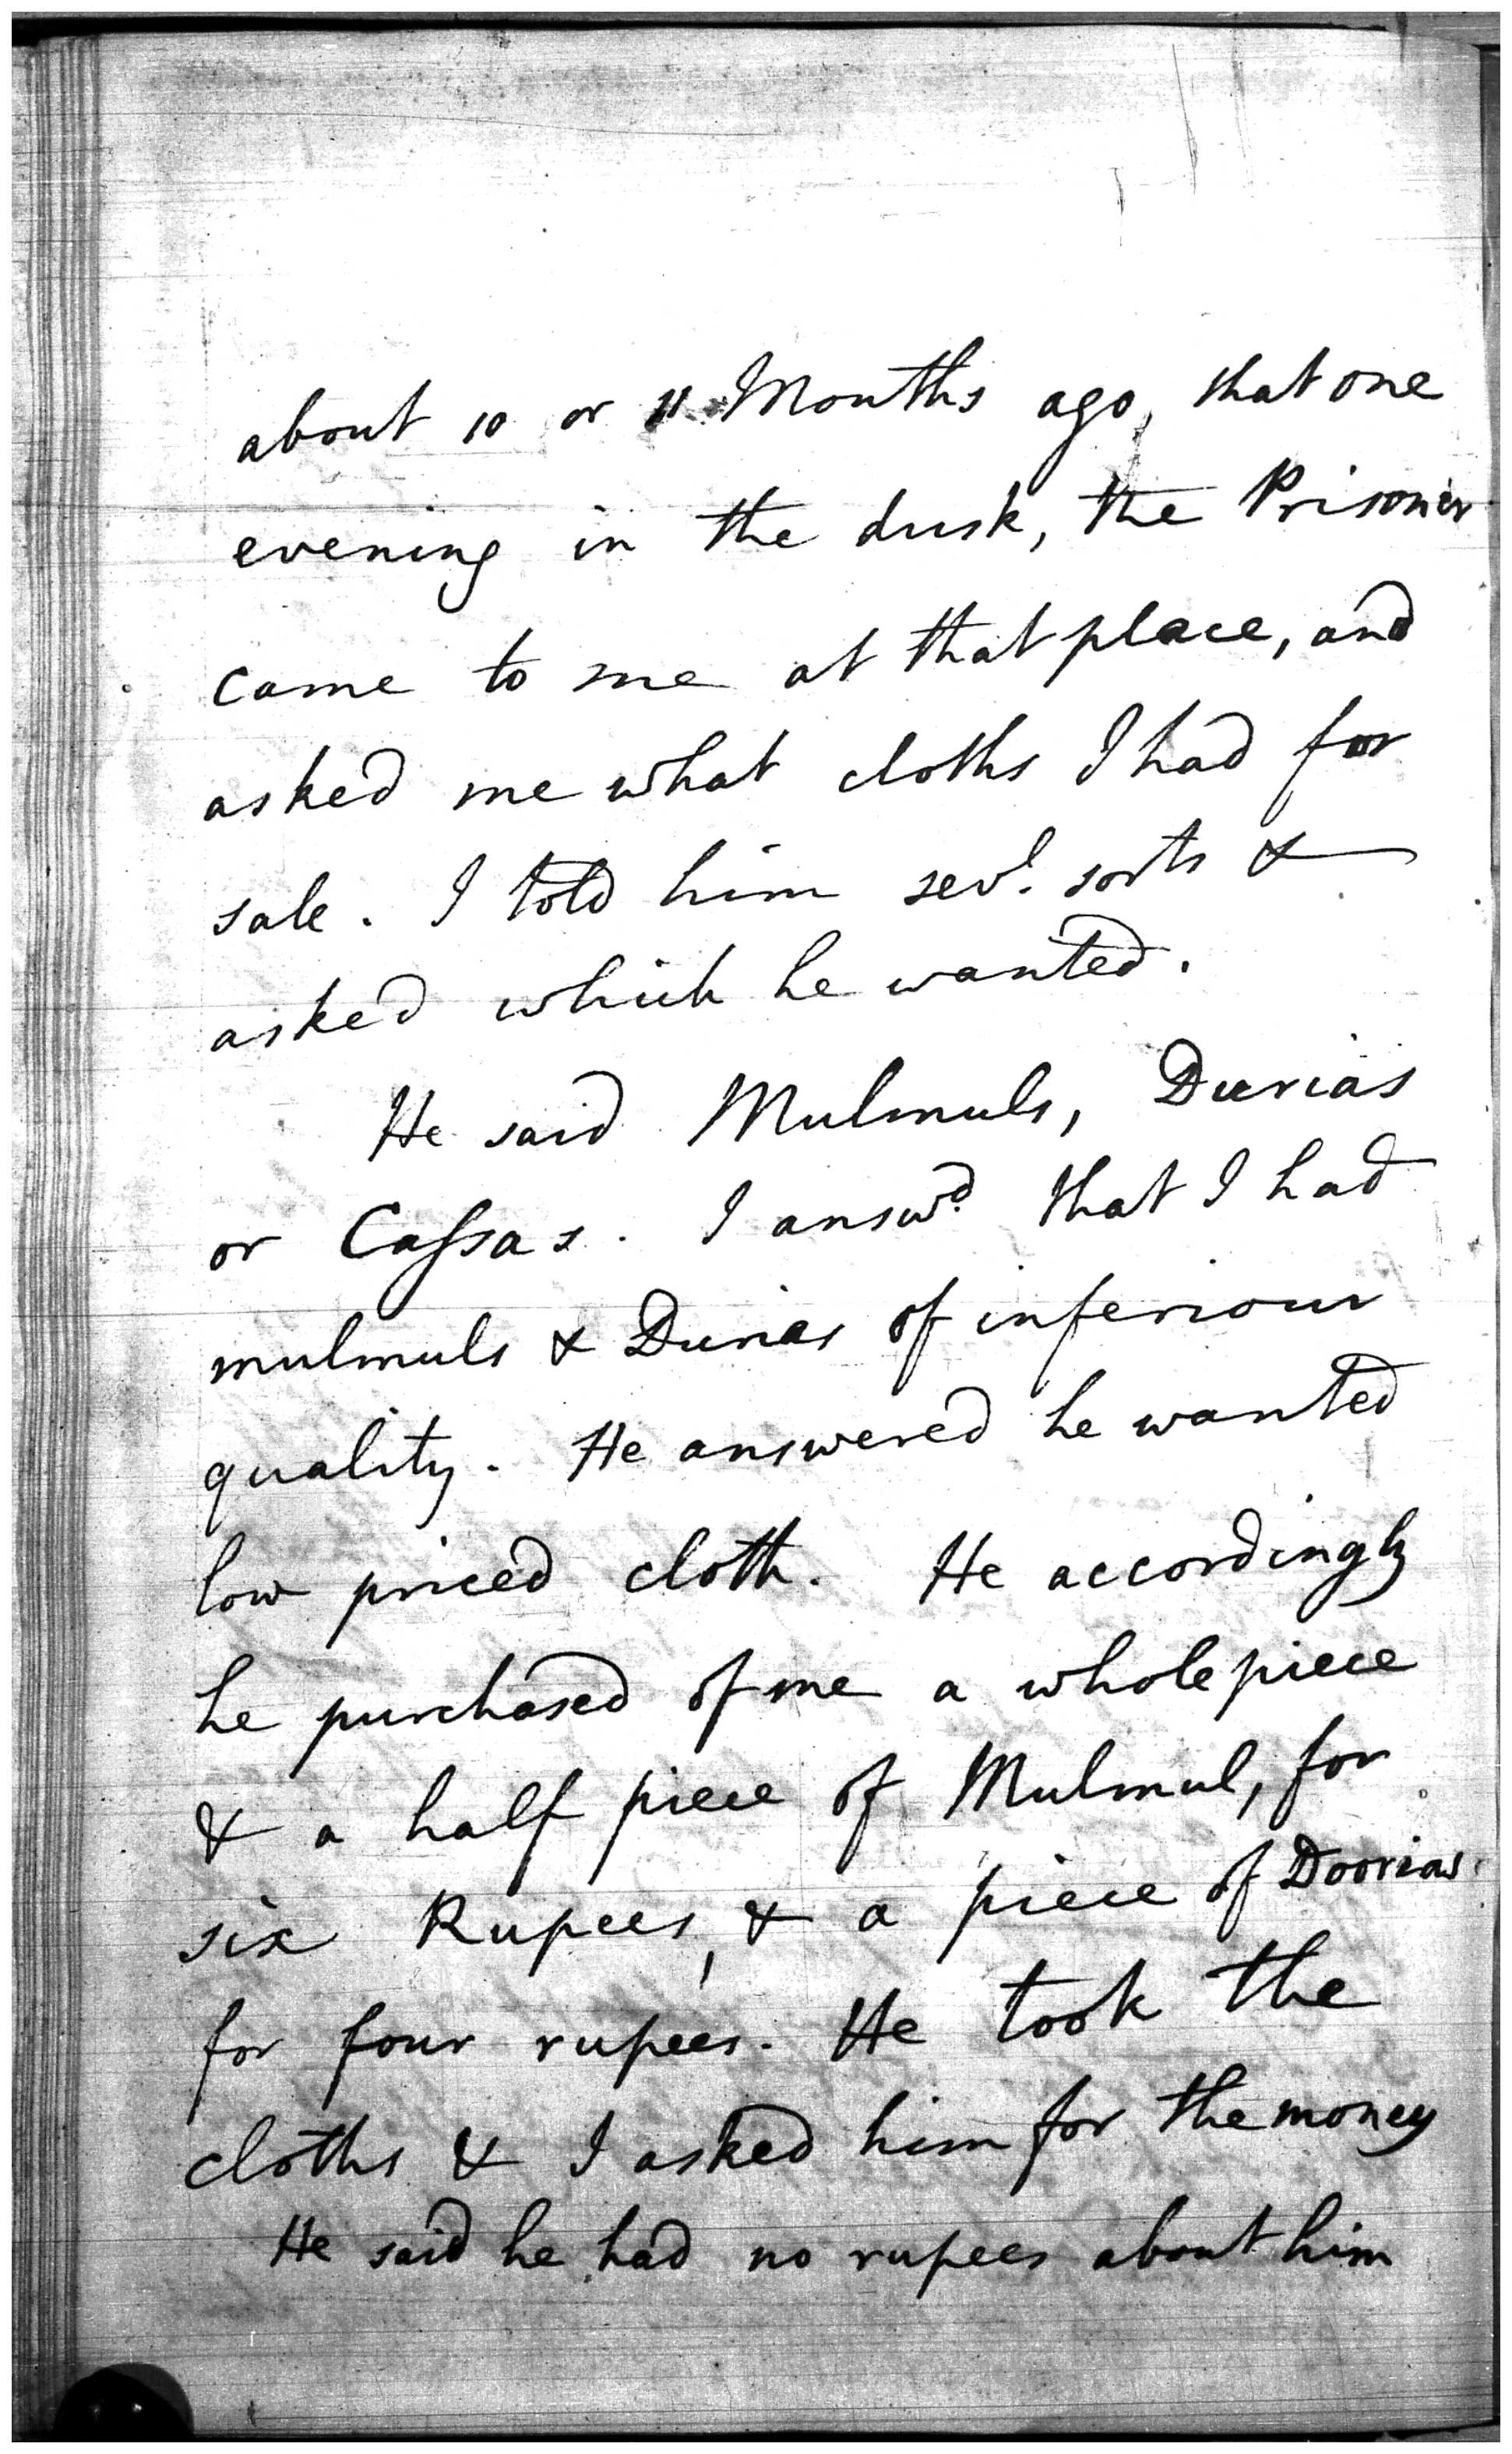 about 10 or 11 Months ago, that one
evening in the dusk, the Prisoner
came to me at that place, and
asked me what cloths I had for
sale. I told him sevl. sorts &
asked which he wanted.
He said Mulmuls, Durias
or Cassas. I answd. that I had
mulmuls & Durias of inferiour
quality. He answered he wanted
low priced cloth. He accordingly
he purchased of me a whole piece
& a half piece of Mulmul, for
six Rupees, & a piece of Doorias
for four rupees. He took the
cloths & I asked him for the money
He said he had no rupees about him